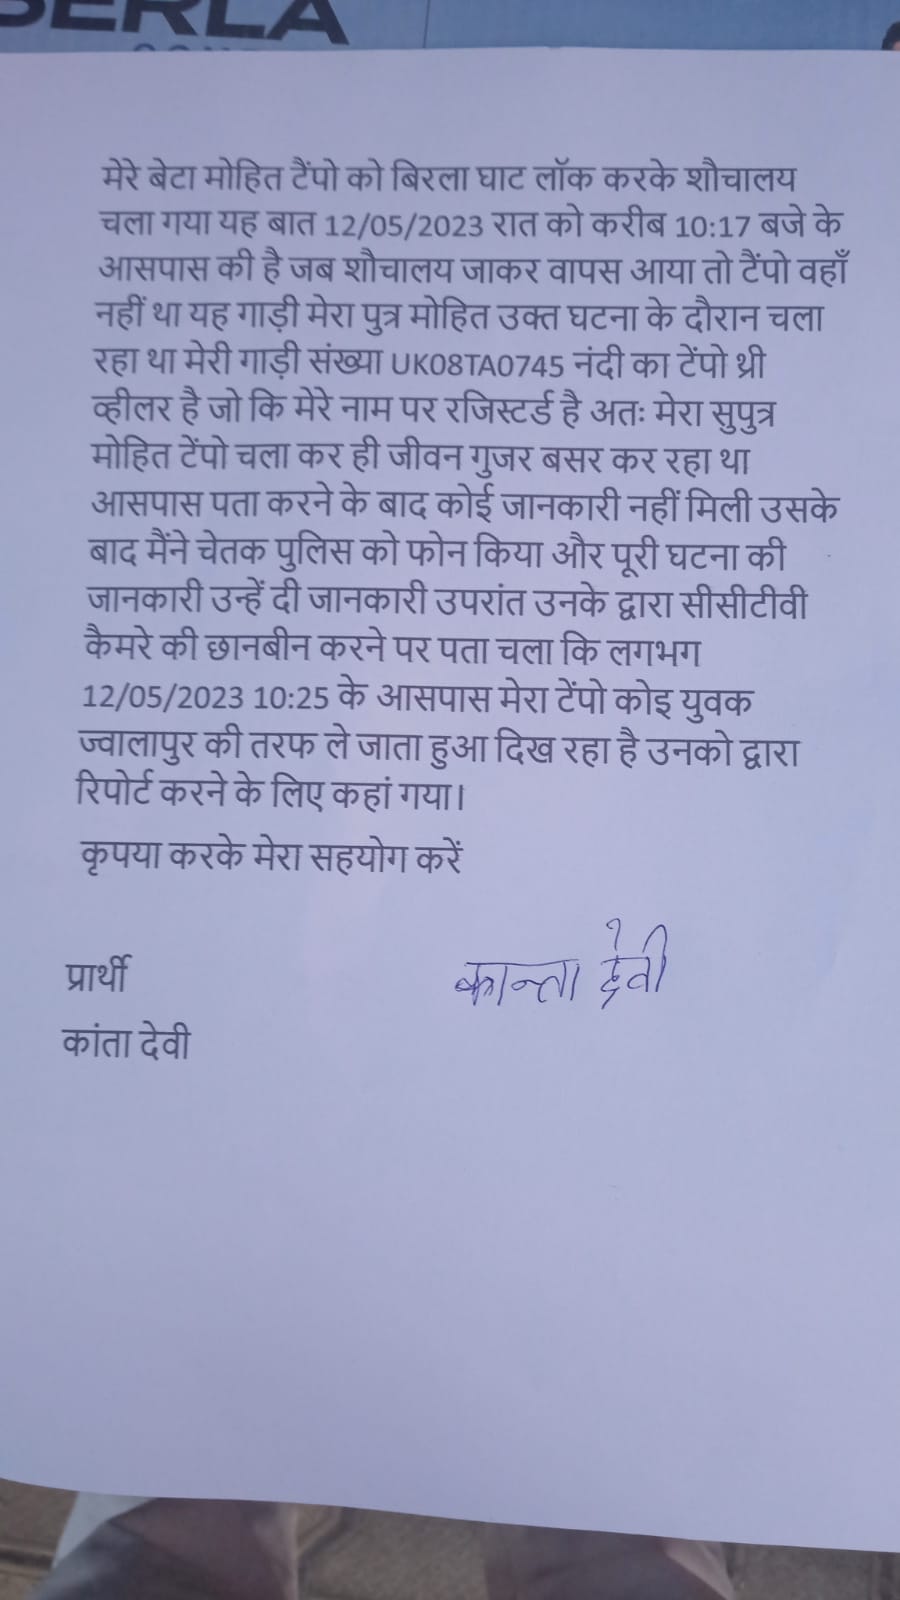 मेरे बेटा मोहित टैंपो को बिरला घाट लॉक करके शौचालय
चला गया यह बात 12/05/2023 रात को करीब 10:17 बजे के
आसपास की है जब शौचालय जाकर वापस आया तो टैंपो वहाँ
नहीं था यह गाड़ी मेरा पुत्र मोहित उक्त घटना के दौरान चला
रहा था मेरी गाड़ी संख्या UK08TA0745 नंदी का टेंपो थ्री
व्हीलर है जो कि मेरे नाम पर रजिस्टर्ड है अतः मेरा सुपुत्र
मोहित टेंपो चला कर ही जीवन गुजर बसर कर रहा था
आसपास पता करने के बाद कोई जानकारी नहीं मिली उसके
बाद मैंने चेतक पुलिस को फोन किया और पूरी घटना की
जानकारी उन्हें दी जानकारी उपरांत उनके द्वारा सीसीटीवी
कैमरे की छानबीन करने पर पता चला कि लगभग
12/05/2023 10:25 के आसपास मेरा टेंपो कोइ युवक
ज्वालापुर की तरफ ले जाता हुआ दिख रहा है उनको द्वारा
रिपोर्ट करने के लिए कहां गया।
कृपया करके मेरा सहयोग करें
प्रार्थी
कान्ता देवी
कांता देवी